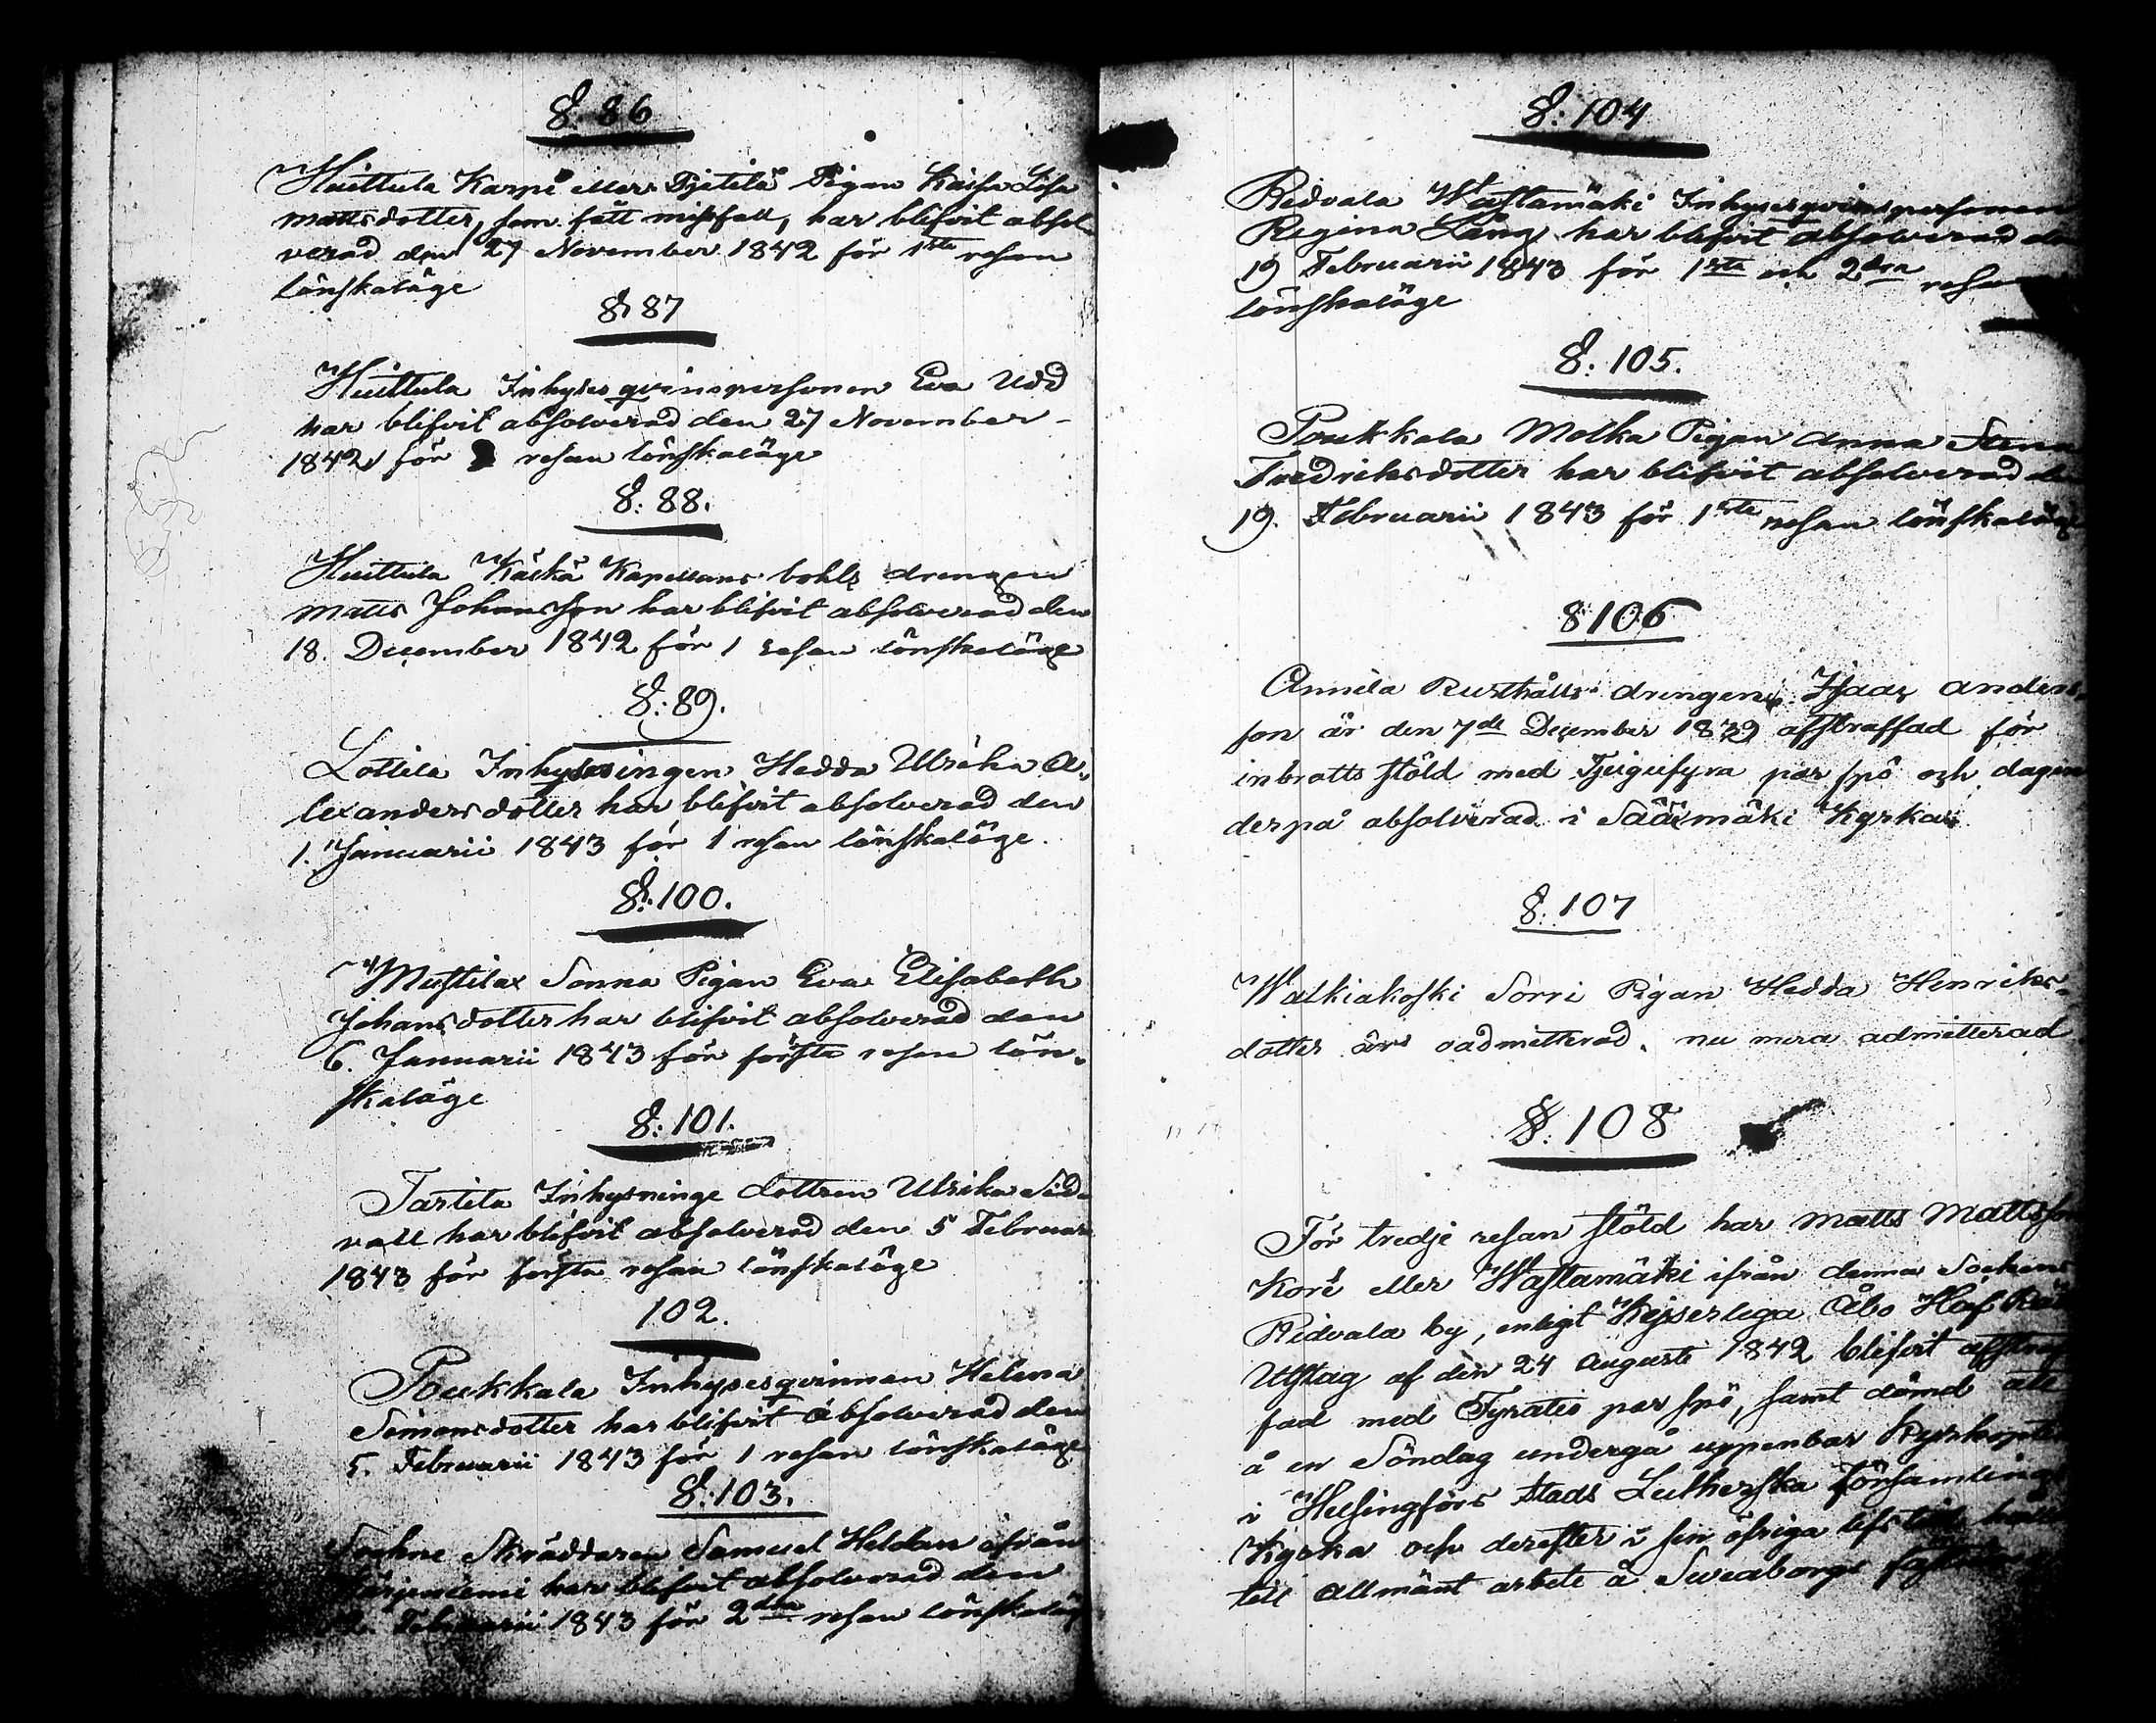 §. 86
Huittula Karpi eller Pjetilä Pigan Kaisa Lisa
Mattsdotter, som fått missfall, har blifvit absol
verad den 27 November 1842 för 1sta resan
lönskaläge
§ 87
Huittula Inhyses qvinspersonen Eva Udd
har blifvit absolverad den 27 November
1842 för resan lönskaläge
§: 88.
Huittula Käckä Kapellans bohls drengen
Matts Johansson har blifvit absolverad den
18. December 1842 för 1 resan lönskaläge
§: 89.
Lottila Inhysesingen Hedda Ulrika A-
lexandersdotter har blifvit absolverad den
1. Januarii 1843 för 1 resan lönskaläge.
§: 100.
Mustila Sonna Pigan Eva Elisabeth
Johansdotter har blifvit absolverad den
6. Januarii 1843 för första resan lön-
skaläge
§: 101.
Tarttila Inhysninge dottren Ulrika
vall har blifvit absolverad den 5 Februarii
1843 för första resan lönskaläge
102.
Roukkala Inhysesqvinnan Helena
Simonsdotter har blifvit absolverad den
5. Februarii 1843 för 1 resan lönskaläge
§: 103.
Sockne Skräddaren Samuel Heldan ifrån
har blifvit absolverad den
12. Februarii 1843 för 2dra resan lönskaläge
§: 104
Ridvala Wastamäki Inhysesqvinspersonen
Regina Lång har blifvit absolverad den
19 Februarii 1843 för 1sta och 2dra resan
lönskaläge
§: 105.
Roukkala Molka Pigan Anna Stina
Fredriksdotter har blifvit absolverad den
19. Februarii 1843 för 1sta resan lönskaläge
§ 106
Annila Rusthålls drengen Isaac Anders-
son är den 7de December 1839 afstraffad för
inbrotts stöld med Tjugufyra par spö och dagen
derpå absolverad i Sääxmäki Kyrka
§. 107
Walkiakoski Sorri Pigan Hedda Henriks-
dotter är oadmitterad. nu mera admitterad
§. 108
För tredje resan stöld har Matts Mattsson
Kore eller Wastamäki ifrån denna Sockens
Ridvala by, enligt Kejserliga Åbo Hof Rätts
Utslag af den 24 Augusti 1842 blifvit afstraf
fad med Fyratio par spö, samt dömd att
å en Söndag undergå uppenbar Kyrkoplikt
i Helsingfors Stads Lutherska Församlings
Kyrka och derefter i sin öfriga lifstid hållas
till allmänt arbete å Sveaborgs fästning